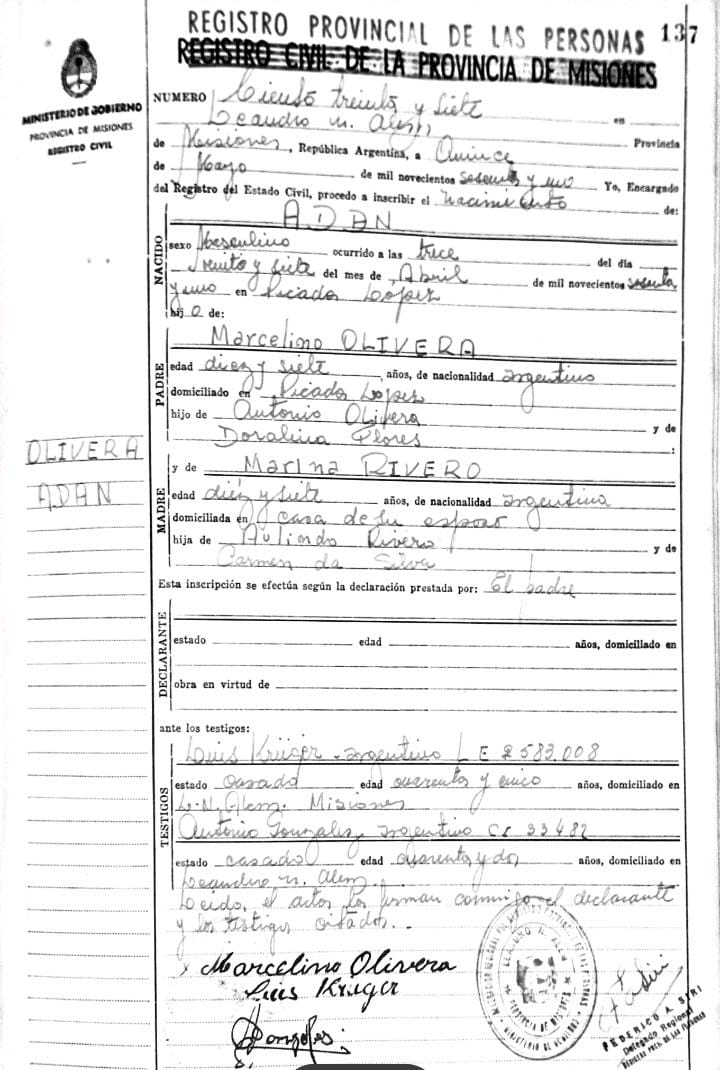 REGISTRO PROVINCIAL DE LAS PERSONAS 137
REGISTRO CIVIL DE LA PROVINCIA DE MISIONES
MINISTERIO DE GOBIERNO
PROVINCIA DE MISIONES
REGISTRO CIVIL
NUMERO Ciento treinta y siete
Leandro N. Alem, en
de Misiones, República Argentina, a Quince Provincia
de Mayo de mil novecientos sesenta y uno Yo, Encargado
del Registro del Estado Civil, procedo a inscribir el nacimiento de:
NACIDO
ADAN
sexo Masculino ocurrido a las trece del día
y siete del mes de Abril de mil novecientos sesenta
y uno en Picada Lopez
hij o de:
PADRE
Marcelino OLIVERA
edad diez y siete años, de nacionalidad argentino
domiciliado en Picada Lopez
hijo de Antonio Olivera y de
Doralina Flores :
OLIVERA
ADAN
MADRE
y de Marina RIVERO
edad diez y siete años, de nacionalidad argentina
domiciliada en casa de su esposo
hija de Rivero y de
Carmen da Silva
Esta inscripción se efectúa según la declaración prestada por: El padre
DECLARANTE
estado edad años, domiciliado en
obra en virtud de
ante los testigos:
TESTIGOS
Luis Krüger - argentino L E 2583.008
estado casado edad cuarenta y cinco años, domiciliado en
L. N. Alem. Misiones
Antonio Gonzalez, argentino CI 33482
estado casado edad cuarenta y dos años, domiciliado en
Leandro N. Alem.
Leido, el acta, la firman conmigo el declarante
y los testigos citados..
Marcelino Olivera
Luis Kruger
FEDERICO A. SIRI
Delegado Regional
REGISTRO PROV. DE LAS PERSONAS
LEANDRO N. ALEM
PROVINCIA DE MISIONES
MINISTERIO DE GOBIERNO